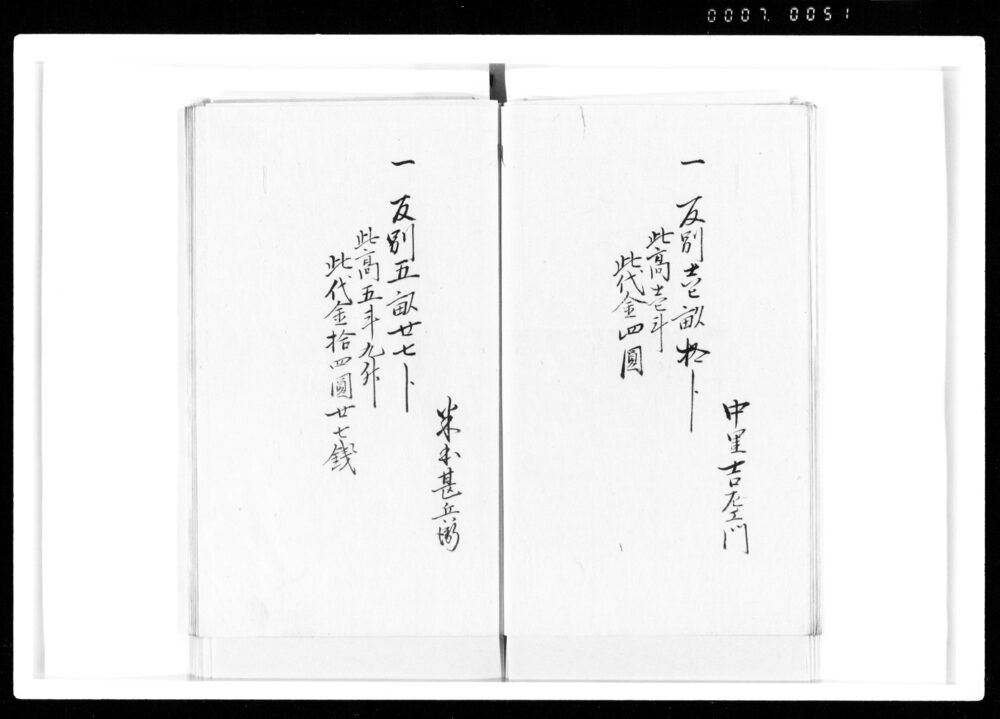 0007 0051
中里吉左エ門
一 反別壱畝拾卜
此高壱斗
此代金四圓
米本甚兵衛
一 反別五畝廿七卜
此高五斗九升
此代金拾四圓廿七錢